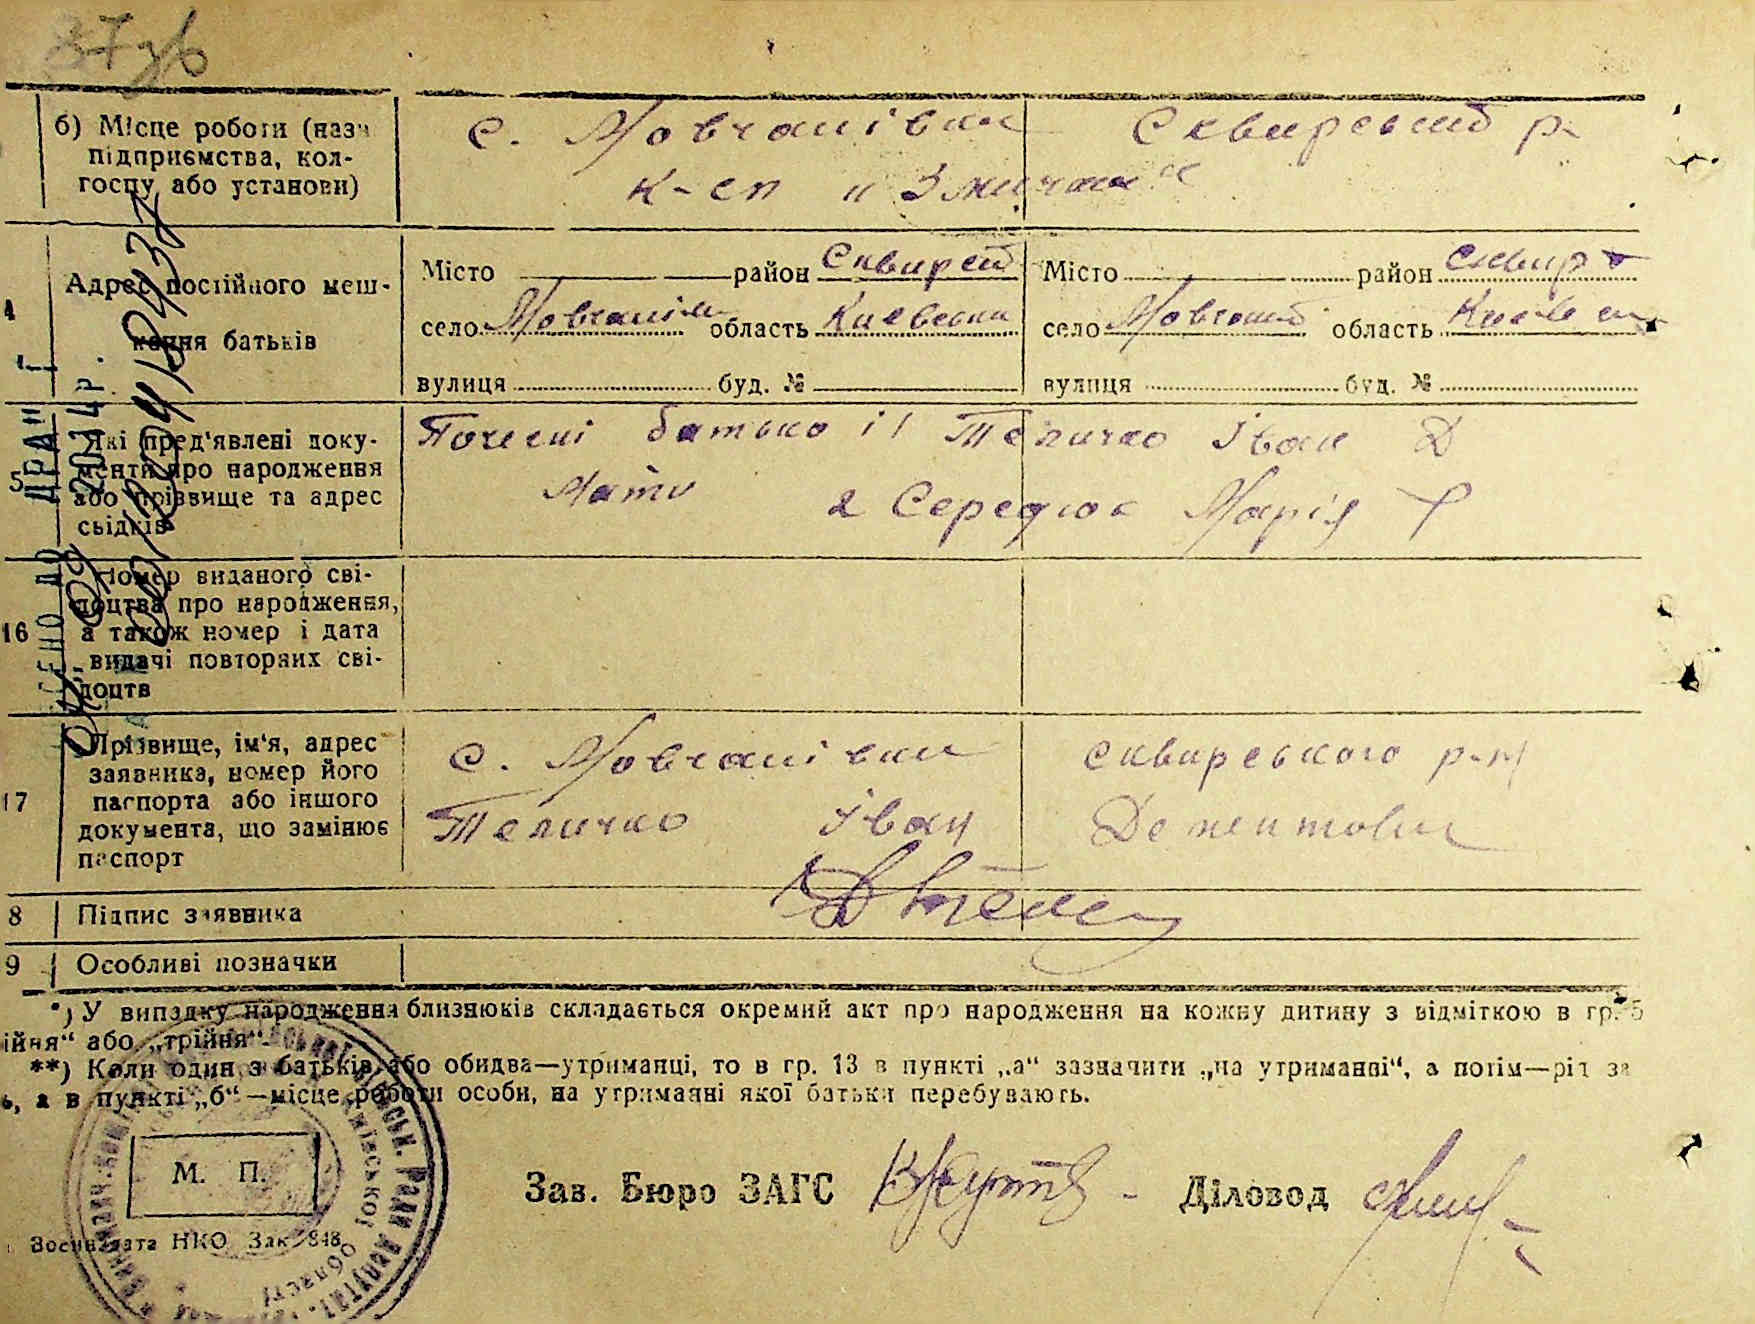 37зв
б) Місце роботи (назв
підприємства, кол-
госпу або установи)
с. Мовчанівки Сквирський р-
к-сп „Змичка“
4 Адрес постійного меш-
кання батьків
Місто район Сквирсь
село Мовчанівк область Київська
вулиця буд. №
Місто район Сквир
село Мовчанів область Київ
вулиця буд. №
5 Які пред'явлені доку-
менти про народження
або прізвище та адрес
свідків
батько і1 Теличко Іван Д
Мати 2 Середюк Марія
16 Номер виданого сві-
доцтва про народження,
а також номер і дата
видачі повторних сві-
доцтв
17 Прізвище, ім'я, адрес
заявника, номер його
паспорта або іншого
документа, що замінює
паспорт
с. Мовчанівки Сквирського р-н
Теличко Іван Дементович
8 Підпис заявника
9 Особливі позначки
*) У випадку народження близнюків складається окремий акт про народження на кожну дитину з відміткою в гр. 5
ійня“ або „трійня“.
**) Коли один з батьків або обидва—утриманці, то в гр. 13 в пункті „а“ зазначити „на утриманні“, а потім—рід за
ь, а в пункті „б“—місце роботи особи, на утриманні якої батьки перебувають.
М. П.
Зав. Бюро ЗАГС Діловод
НКО Зак 848